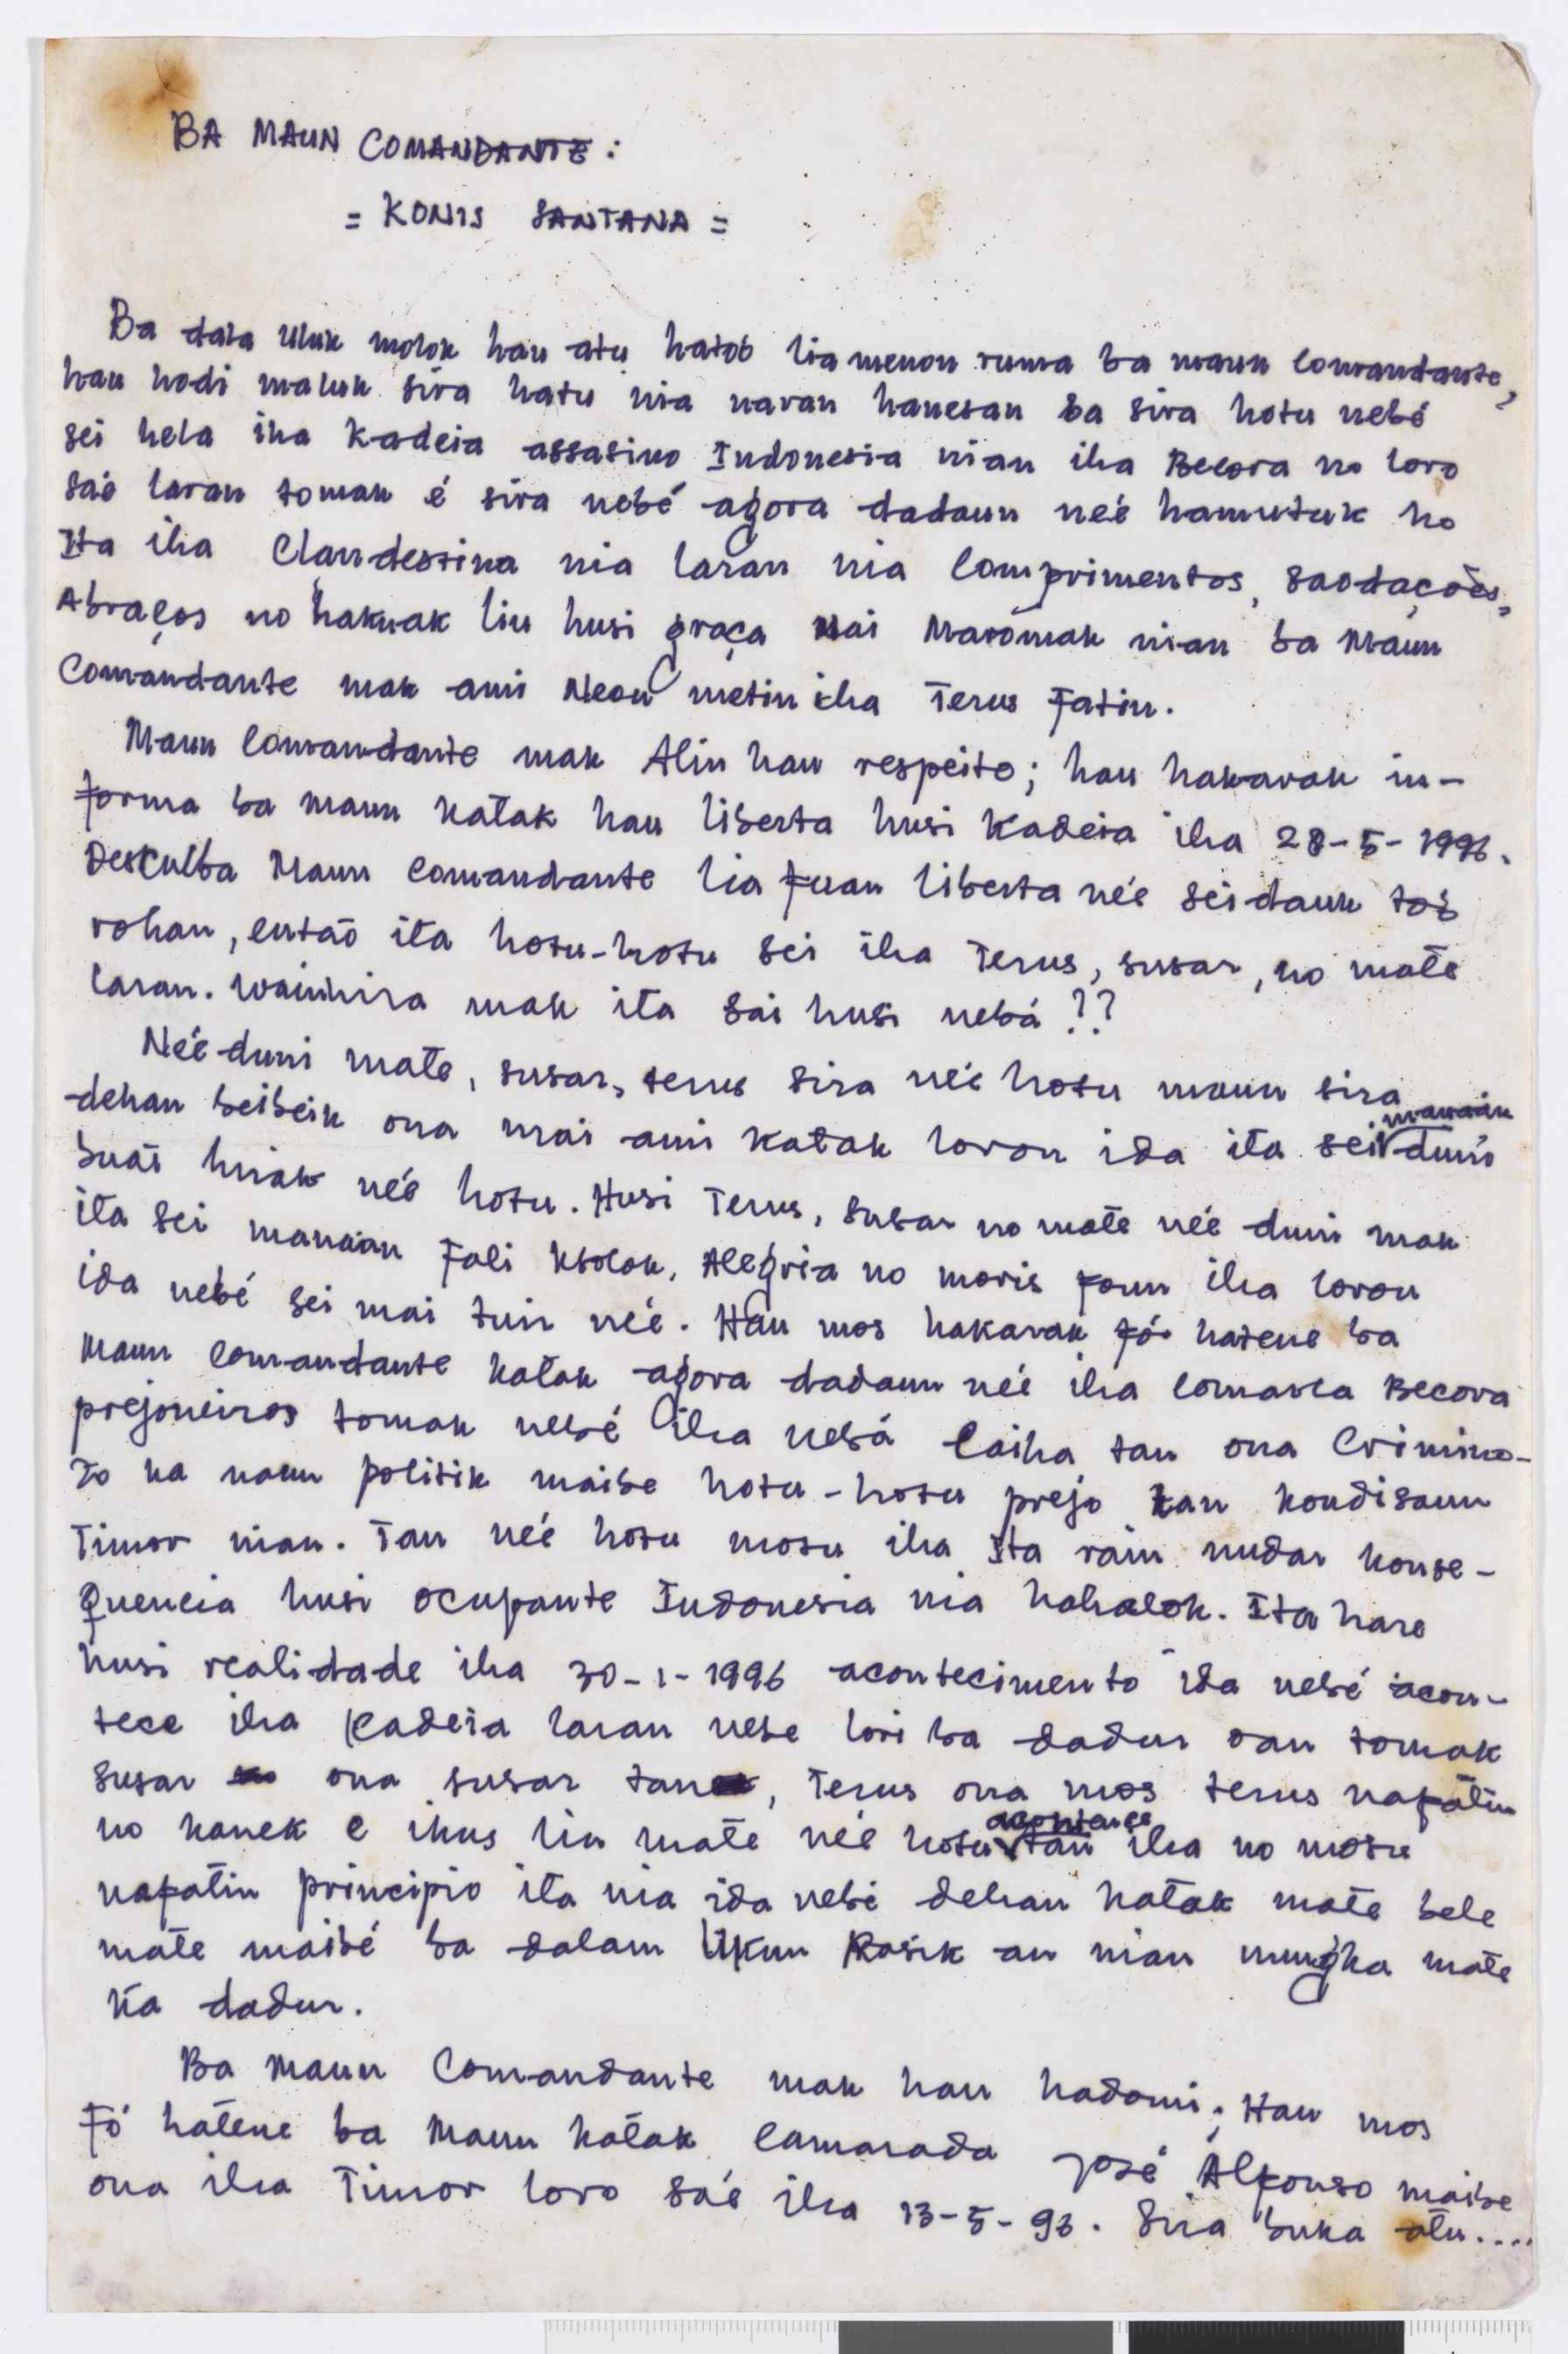 BA MAUN COMANDANTE :
= KONIS SANTANA =
Ba dala uluk molok hau atu hatoó lia menon ruma ba maun Comandante,
hau hodi maluk sira hatu nia naran hanesan ba sira hotu nebé
sei hela iha Kadeia assasino Indonesia nian iha Becora no loro
saé laran tomak é sira nebé agora dadaun neé hamutuk ho
Ita iha Clandestina nia laran nia Comprimentos, saodações,
Abraços no hakuak liu husi graça Nai Maromak nian ba Maun
Comandante mak ami Neon metin iha Terus Fatin.
Maun Comandante mak Alin hau respeito; hau hakarak in-
forma ba maun katak hau liberta husi Kadeia iha 28-5-1996.
Desculba Maun Comandante lia fuan liberta neé seidauk toó
rohan, entaõ ita hotu-hotu sei iha Terus, susar, no mate
laran. Wainhira mak ita sai husi nebá ??
Neé duni mate, susar, terus sira neé hotu maun sira
dehan beibeik ona mai ami katak loron ida ita sei manaán duni
buat hirak neé hotu. Husi Terus, susar no mate neé duni mak
ita sei manaan Fali ksolok, Alegria no moris foun iha loron
ida nebé sei mai tuir neé. Hau mos hakarak fó hatene ba
Maun Comandante katak agora dadaun neé iha Comarca Becora
prejoneiros tomak nebé iha nebá laiha tan ona Crimino-
zo ka naun politik maibe hotu-hotu prejo tan kondisaun
Timor nian. Tan neé hotu mosu iha Ita rain nudar konse-
quencia husi ocupante Indonesia nia hahalok. Ita hare
husi realidade iha 30-1-1996 acontecimento ida nebé acon-
tece iha Kadeia laran nebe lori ba dadur oan tomak
susar ona susar tan, Terus ona mos terus nafatin
no kanek e ikus liu mate neé hotu acontence tan iha no mosu
nafatin principio ita nia ida nebé dehan katak mate bele
mate maibé ba dalam Ukun Rasik an nian mungka mate
ka dadur.
Ba Maun Comandante mak hau hadomi; Hau mos
Fó hatene ba Maun katak Camarada José Alfonso maibe
ona iha Timor loro saé iha 13-5-96. Sira buka atu....